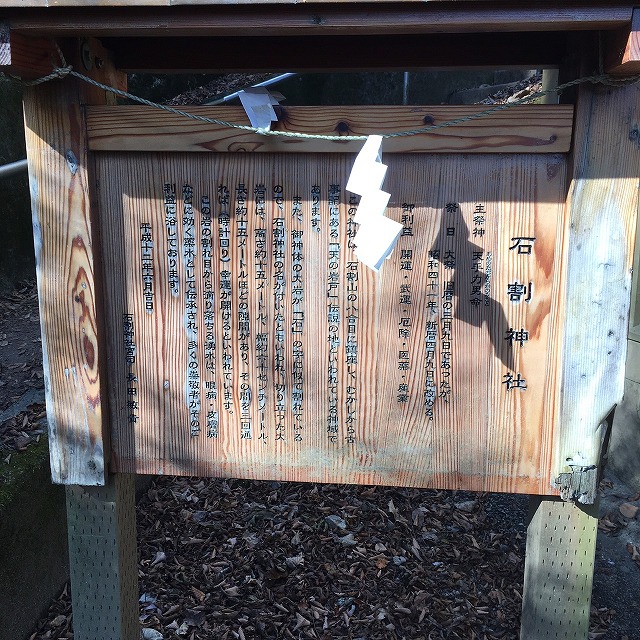 石割神社
主祭神　天手力男命
祭日　大祭　旧暦の四月九日であったが、
昭和四十一年、新暦四月九日に改める。
御利益　開運・武運・厄除・医薬・産業
この神社は、石割山の八合目に鎮座し、むかしから古
事記にある「天の岩戸」伝説の地といわれている神域で
あります。
また、御神体の大岩が「石」の字に似て割れている
ので、石割神社の名が付いたともいわれ、切り立った大
岩には、高さ約十五メートル、幅約六十センチメートル、
長さ約十五メートルほどの隙間があり、その間を三回通
れば（時計回り）幸運が開けるといわれています。
この岩の割れ目から滴り落ちる湧水は、眼病・皮膚病
などに効く霊水として伝承され、多くの崇敬者がその字
利益に浴しております。
平成二十六年五月吉日
石割神社宮司